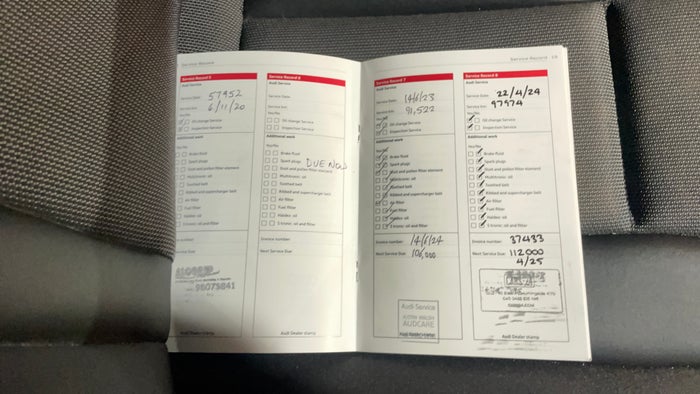 Service Record
Service Record 5
Audi Service
Service Date: 57952
Service km: 6/11/20
Yes/No
Oil change Service
Inspection Service
Additional work
Yes/No
Brake fluid
Spark plugs
Dust and pollen filter element
Multitronic: oil
Toothed belt
Ribbed and supercharger belt
Air filter
Fuel filter
Haldex: oil
S tronic: oil and filter
Invoice number
Next Service Due
Audi Dealer stamp
Service Record 6
Audi Service
Service Date:
Service km:
Yes/No
Oil change Service
Inspection Service
Additional work
Yes/No
Brake fluid
Spark plugs DUE NOW
Dust and pollen filter element
Multitronic: oil
Toothed belt
Ribbed and supercharger belt
Air filter
Fuel filter
Haldex: oil
S tronic: oil and filter
Invoice number
Next Service Due
Audi Dealer stamp
Service Record
Service Record 7
Audi Service
Service Date: 14/6/23
Service km: 91,522
Yes/No
Oil change Service
Inspection Service
Additional work
Yes/No
Brake fluid
Spark plugs
Dust and pollen filter element
Multitronic: oil
Toothed belt
Ribbed and supercharger belt
Air filter
Fuel filter
Haldex: oil
S tronic: oil and filter
Invoice number 14/6/24
Next Service Due
Audi Service
AUDCARE
Audi Dealer stamp
Service Record 8
Audi Service
Service Date: 22/4/24
Service km: 97974
Yes/No
Oil change Service
Inspection Service
Additional work
Yes/No
Brake fluid
Spark plugs
Dust and pollen filter element
Multitronic: oil
Toothed belt
Ribbed and supercharger belt
Air filter
Fuel filter
Haldex: oil
S tronic: oil and filter
Invoice number 37433
Next Service Due 112000
4/25
Audi Dealer stamp